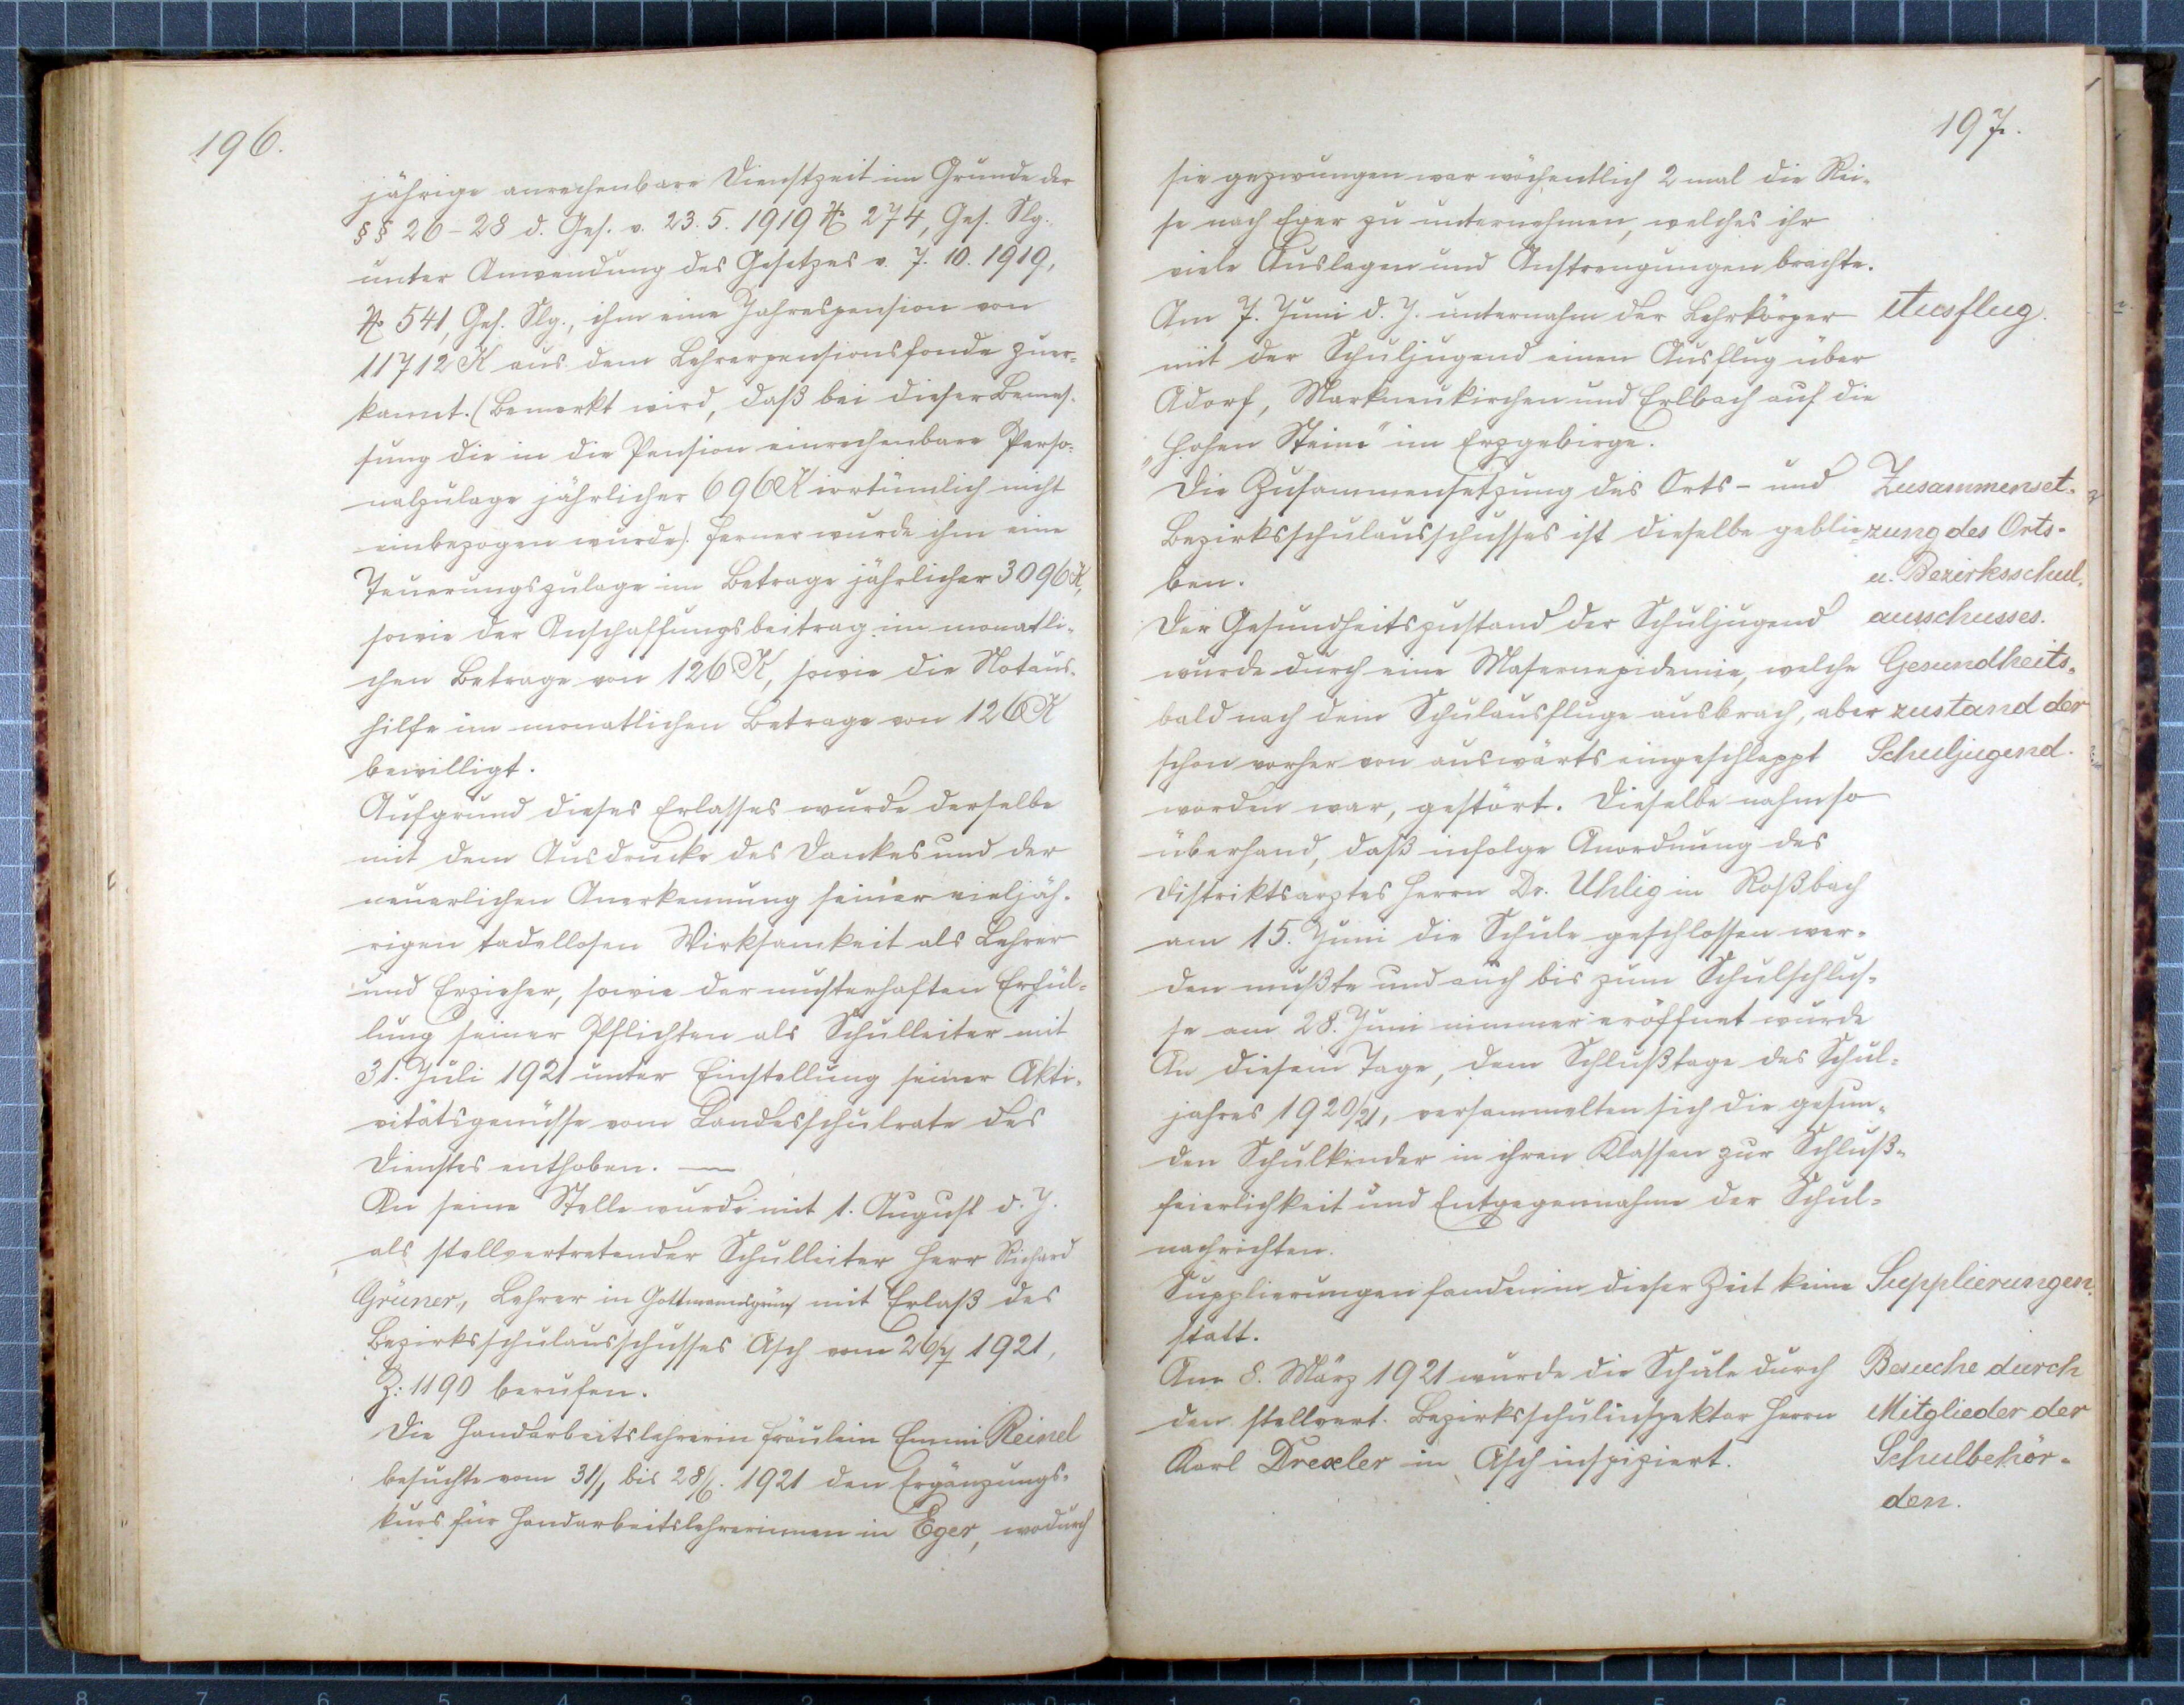 196.
jährige anrechenbare Dienstzeit im Grunde der
§§ 26-28 d. Ges. v. 23.5.1919 № 274, Ges. Slg.
unter Anwendung des Gesetzes v. 7.10.1919,
№ 541, Ges. Slg., ihm eine Jahrespension von
11712 K aus dem Lehrerpensionsfonde zuer-
kannt. (Bemerkt wird, daß bei dieser Bemes-
sung die in die Pension einrechenbare Perso-
nalzulage jährlicher 696 K irrtümlich nicht
einbezogen wurde). Ferner wurde ihm eine
Teuerungszulage im Betrage jährlicher 3096 K,
sowie der Anschaffungsbeitrag im monatli-
chen Betrage von 126 K, sowie die Notaus-
hilfe im monatlichen Betrage von 126 K
bewilligt.
Aufgrund dieses Erlasses wurde derselbe
mit dem Ausdrucke des Dankes und der
neuerlichen Anerkennung seiner vieljäh-
rigen tadellosen Wirksamkeit als Lehrer
und Erzieher, sowie der musterhaften Erfül-
lung seiner Pflichten als Schulleiter mit
31. Juli 1921 unter Einstellung seiner Akti-
vitätsgenüsse vom Landesschulrate des
Dienstes enthoben. —
An seine Stelle wurde mit 1. August d. J.
als stellvertretender Schulleiter Herr Richard
Grüner, Lehrer in Gottmannsgrün mit Erlaß des
Bezirksschulausschusses Asch vom 26/7 1921,
Z: 1190 berufen.
Die Handarbeitslehrerin Fräulein Emmi Reinel
besuchte vom 31/1 bis 28/6. 1921 den Ergänzungs-
kurs für Handarbeitslehrerinnen in Eger, wodurch
197.
sie gezwungen war wöchentlich 2 mal die Rei-
se nach Eger zu unternehmen, welches ihr
viele Auslagen und Anstrengungen brachte.
Am 7. Juni d. J. unternahm der Lehrkörper
mit der Schuljugend einen Ausflug über
Adorf, Markneukirchen und Erlbach auf die
„Hohen Steine" im Erzgebirge.
Die Zusammensetzung des Orts- und
Bezirksschulausschusses ist dieselbe geblie-
ben.
Der Gesundheitszustand der Schuljugend
wurde durch eine Masernepidemie, welche
bald nach dem Schulausfluge ausbrach, aber
schon vorher von auswärts eingeschleppt
worden war, gestört. Dieselbe nahm so
überhand, daß infolge Anordnung des
Distriktsarztes Herrn Dr. Uhlig in Roßbach
am 15. Juni die Schule geschlossen wer-
den mußte und auch bis zum Schulschlus-
se am 28. Juni nimmer eröffnet wurde
An diesem Tage, dem Schlußtage des Schul-
jahres 1920/21, versammelten sich die gesun-
den Schulkinder in ihren Klassen zur Schluß-
feierlichkeit und Entgegennahme der Schul-
nachrichten.
Supplierungen fanden in dieser Zeit keine
statt.
Am 8. März 1921 wurde die Schule durch
den stellvert. Bezirksschulinspektor Herrn
Karl Drexler in Asch inspiziert.
Ausflug.
Zusammenset-
zung des Orts-
u. Bezirksschul-
ausschusses.
Gesundheits-
zustand der
Schuljugend.
Supplierungen.
Besuche durch
Mitglieder der
Schulbehör-
den.